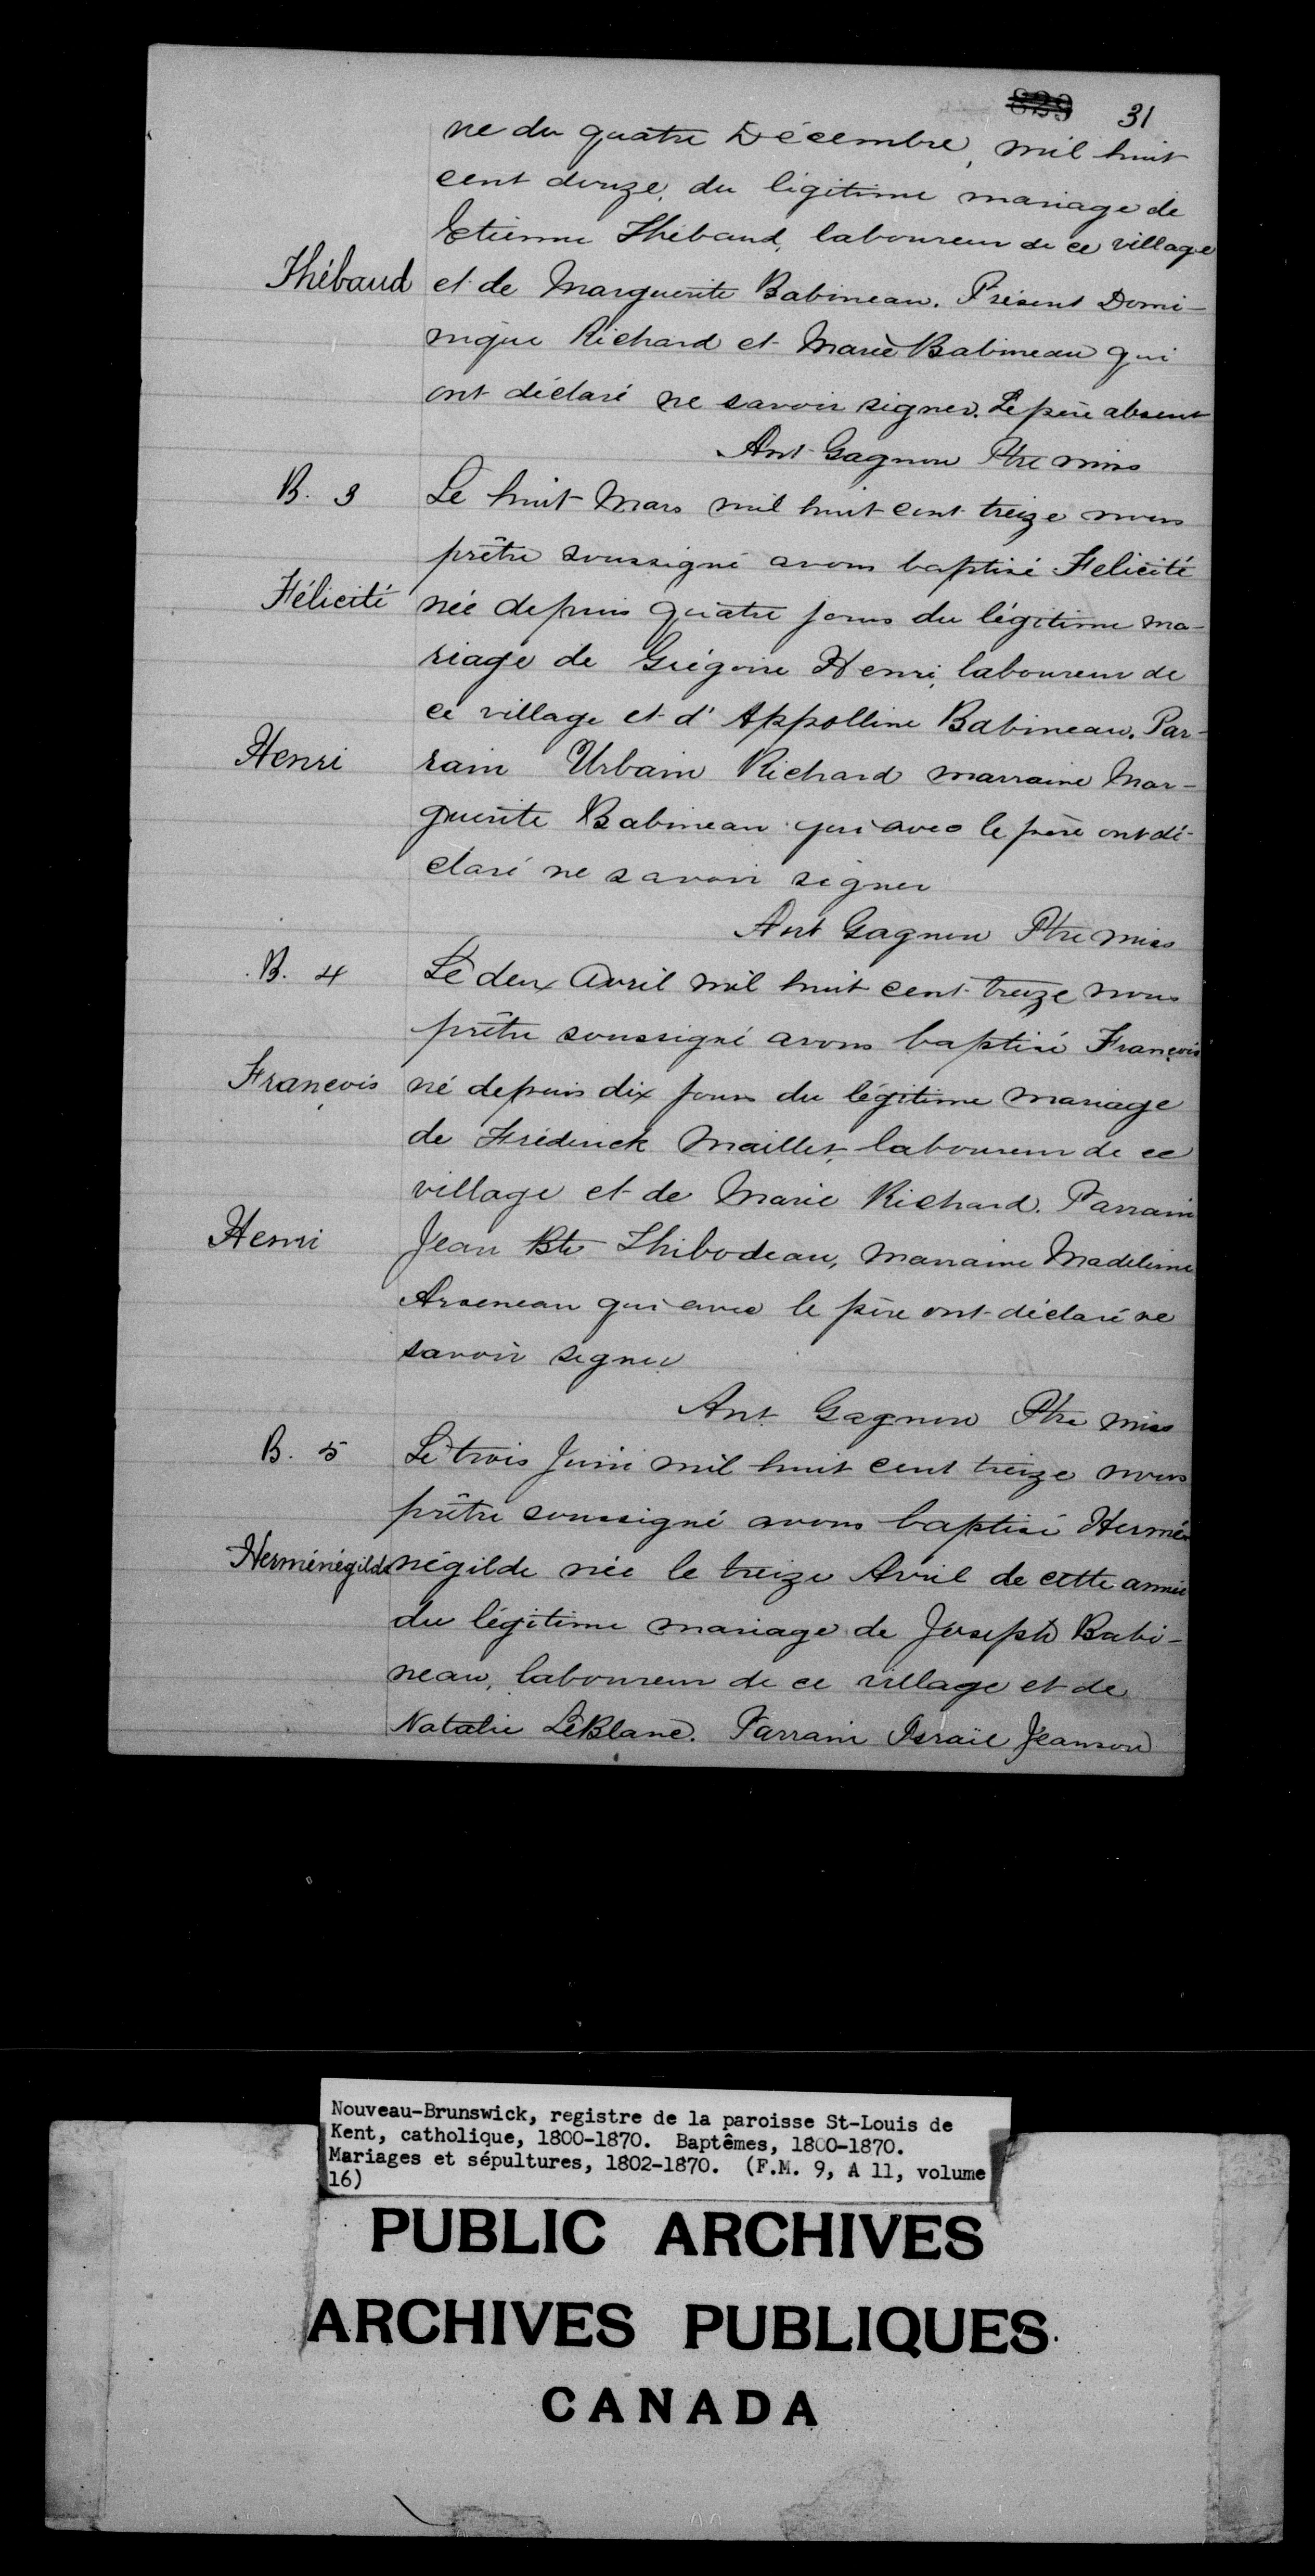 829 31
ne du quatre Décembre, mil huit
cent douze, du légitime mariage de
Etienne Thébaud, laboureur de ce village
Thébaud et de Marguerite Babineau. Présent Domi-
nique Richard et Marie Babineau qui
ont déclaré ne savoir signer. Le père absent
Ant Gagnon Ptre miss
B. 3 Le huit Mars mil huit cent treize nous
prêtre soussigné avons baptisé Felicité
Félicité née depuis quatre jours du légitime ma-
riage de Grégoire Henri, laboureur de
ce village et d'Appolline Babineau. Par-
Henri rain Urbain Richard marraine Mar-
guerite Babineau qui avec le père ont dé-
claré ne savoir signer
Ant Gagnon Ptre miss
B. 4 Le deux Avril mil huit cent treize nous
prêtre soussigné avons baptisé François
François né depuis dix jours du légitime mariage
de Fréderick Maillet, laboureur de ce
village et de Marie Richard. Parrain
Henri Jean Bte Thibodeau, marraine Madeleine
Arseneau qui avec le père ont déclaré ne
savoir signer
Ant. Gagnon Ptre miss
B. 5 Le trois Juin mil huit cent treize nous
prêtre soussigné avons baptisé Hermé-
Herménégilde négilde née le treize Avril de cette année
du légitime mariage de Joseph Babi-
neau, laboureur de ce village et de
Natalie LeBlanc. Parrain Israïl Jeanson
Nouveau-Brunswick, registre de la paroisse St-Louis de
Kent, catholique, 1800-1870. Baptêmes, 1800-1870.
Mariages et sépultures, 1802-1870. (F.M. 9, A 11, volume
16)
PUBLIC ARCHIVES
ARCHIVES PUBLIQUES
CANADA